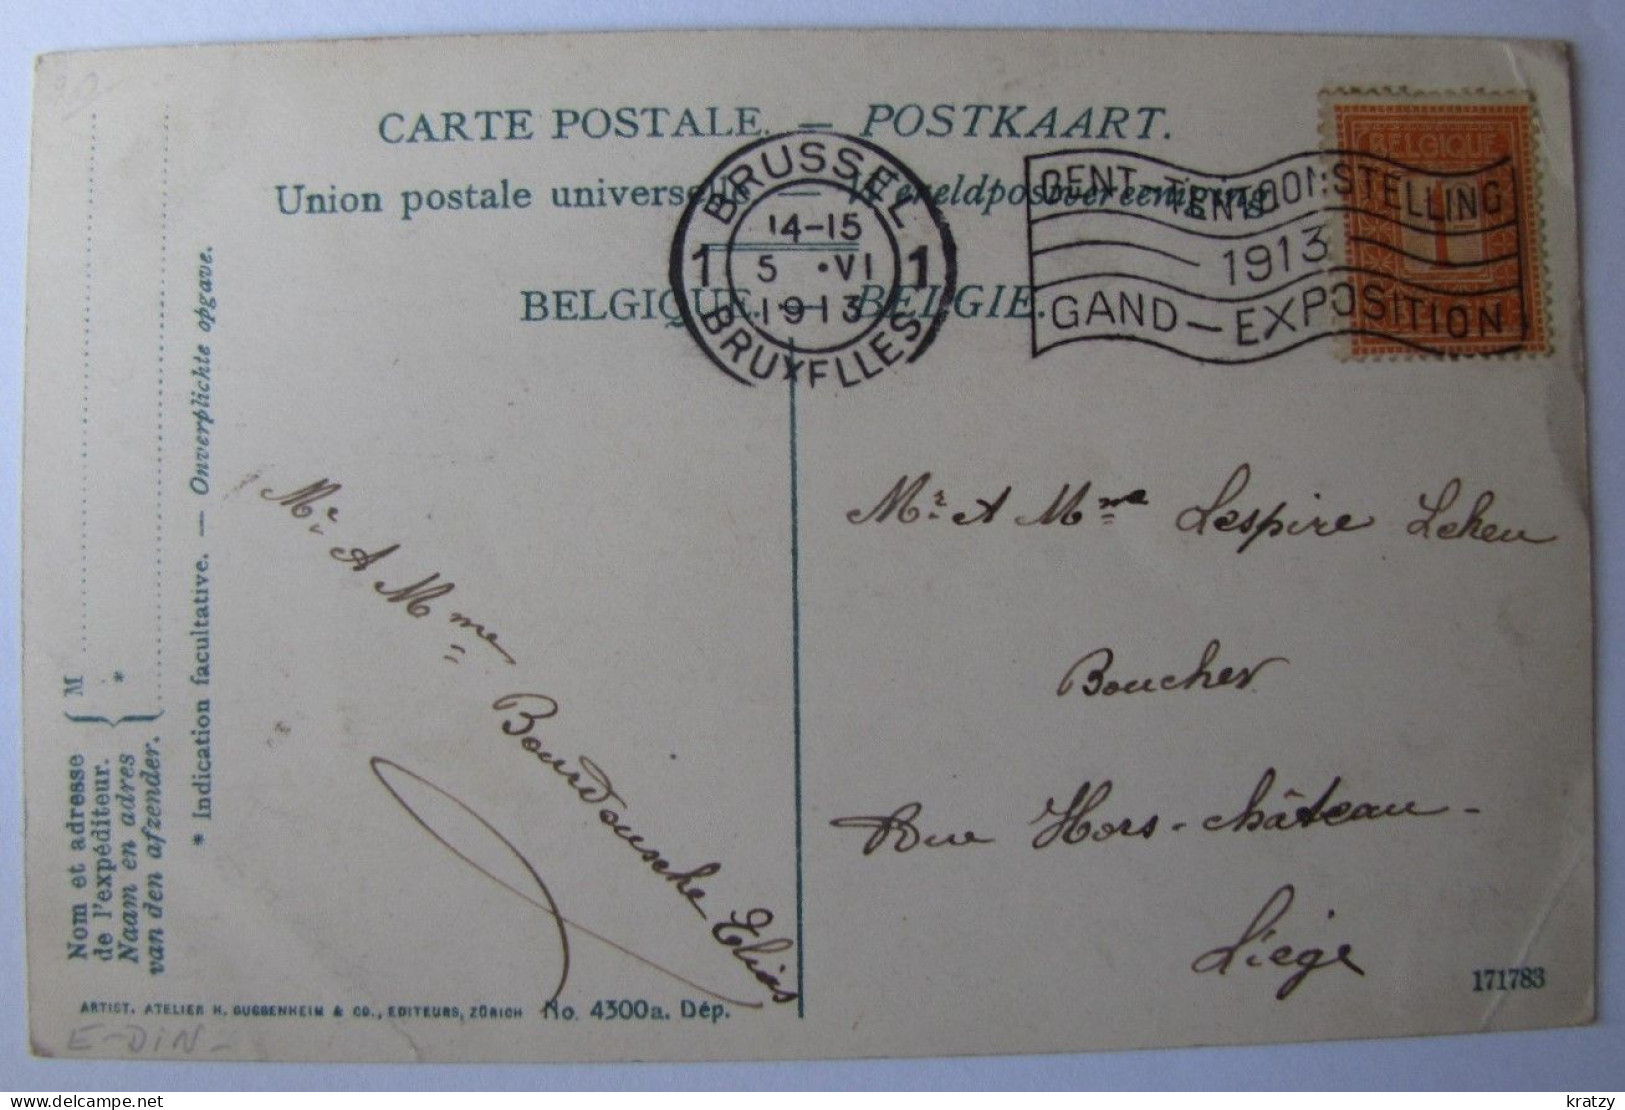 CARTE POSTALE. — POSTKAART.
Union postale universelle — Wereldpostvereeniging
BELGIQUE. — BELGIE.
BRUSSEL
1 14-15 1
5 •VI
1913
BRUXELLES
GENT-TENTOONSTELLING
1913
GAND-EXPOSITION
BELGIQUE
1
Nom et adresse
de l'expéditeur.
Naam en adres
van den afzender.
M
*
* Indication facultative. — Onverplichte opgave.
Mr & Mme Bourdousche Elias
Mr & Mme Lespire Leheu
Boucher
Rue Hors-château-
Liège
171783
ARTIST. ATELIER H. GUGGENHEIM & CO., EDITEURS, ZÜRICH No. 4300a. Dép.
E-DIN-
kratzy